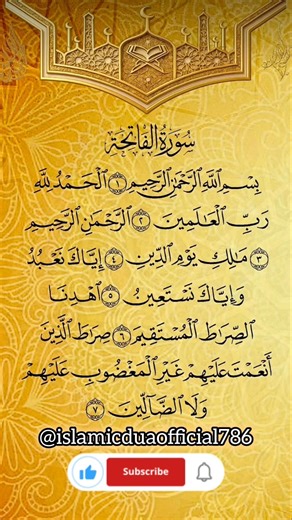 سُورَةُ الْفَاتِحَةِ
بِسْمِ ٱللَّهِ ٱلرَّحْمَٰنِ ٱلرَّحِيمِ ۝١ ٱلْحَمْدُ لِلَّهِ
رَبِّ ٱلْعَٰلَمِينَ ۝٢ ٱلرَّحْمَٰنِ ٱلرَّحِيمِ
۝٣ مَٰلِكِ يَوْمِ ٱلدِّينِ ۝٤ إِيَّاكَ نَعْبُدُ
وَإِيَّاكَ نَسْتَعِينُ ۝٥ ٱهْدِنَا
ٱلصِّرَٰطَ ٱلْمُسْتَقِيمَ ۝٦ صِرَٰطَ ٱلَّذِينَ
أَنْعَمْتَ عَلَيْهِمْ غَيْرِ ٱلْمَغْضُوبِ عَلَيْهِمْ
وَلَا ٱلضَّآلِّينَ ۝٧
@islamicduaofficial786
Subscribe